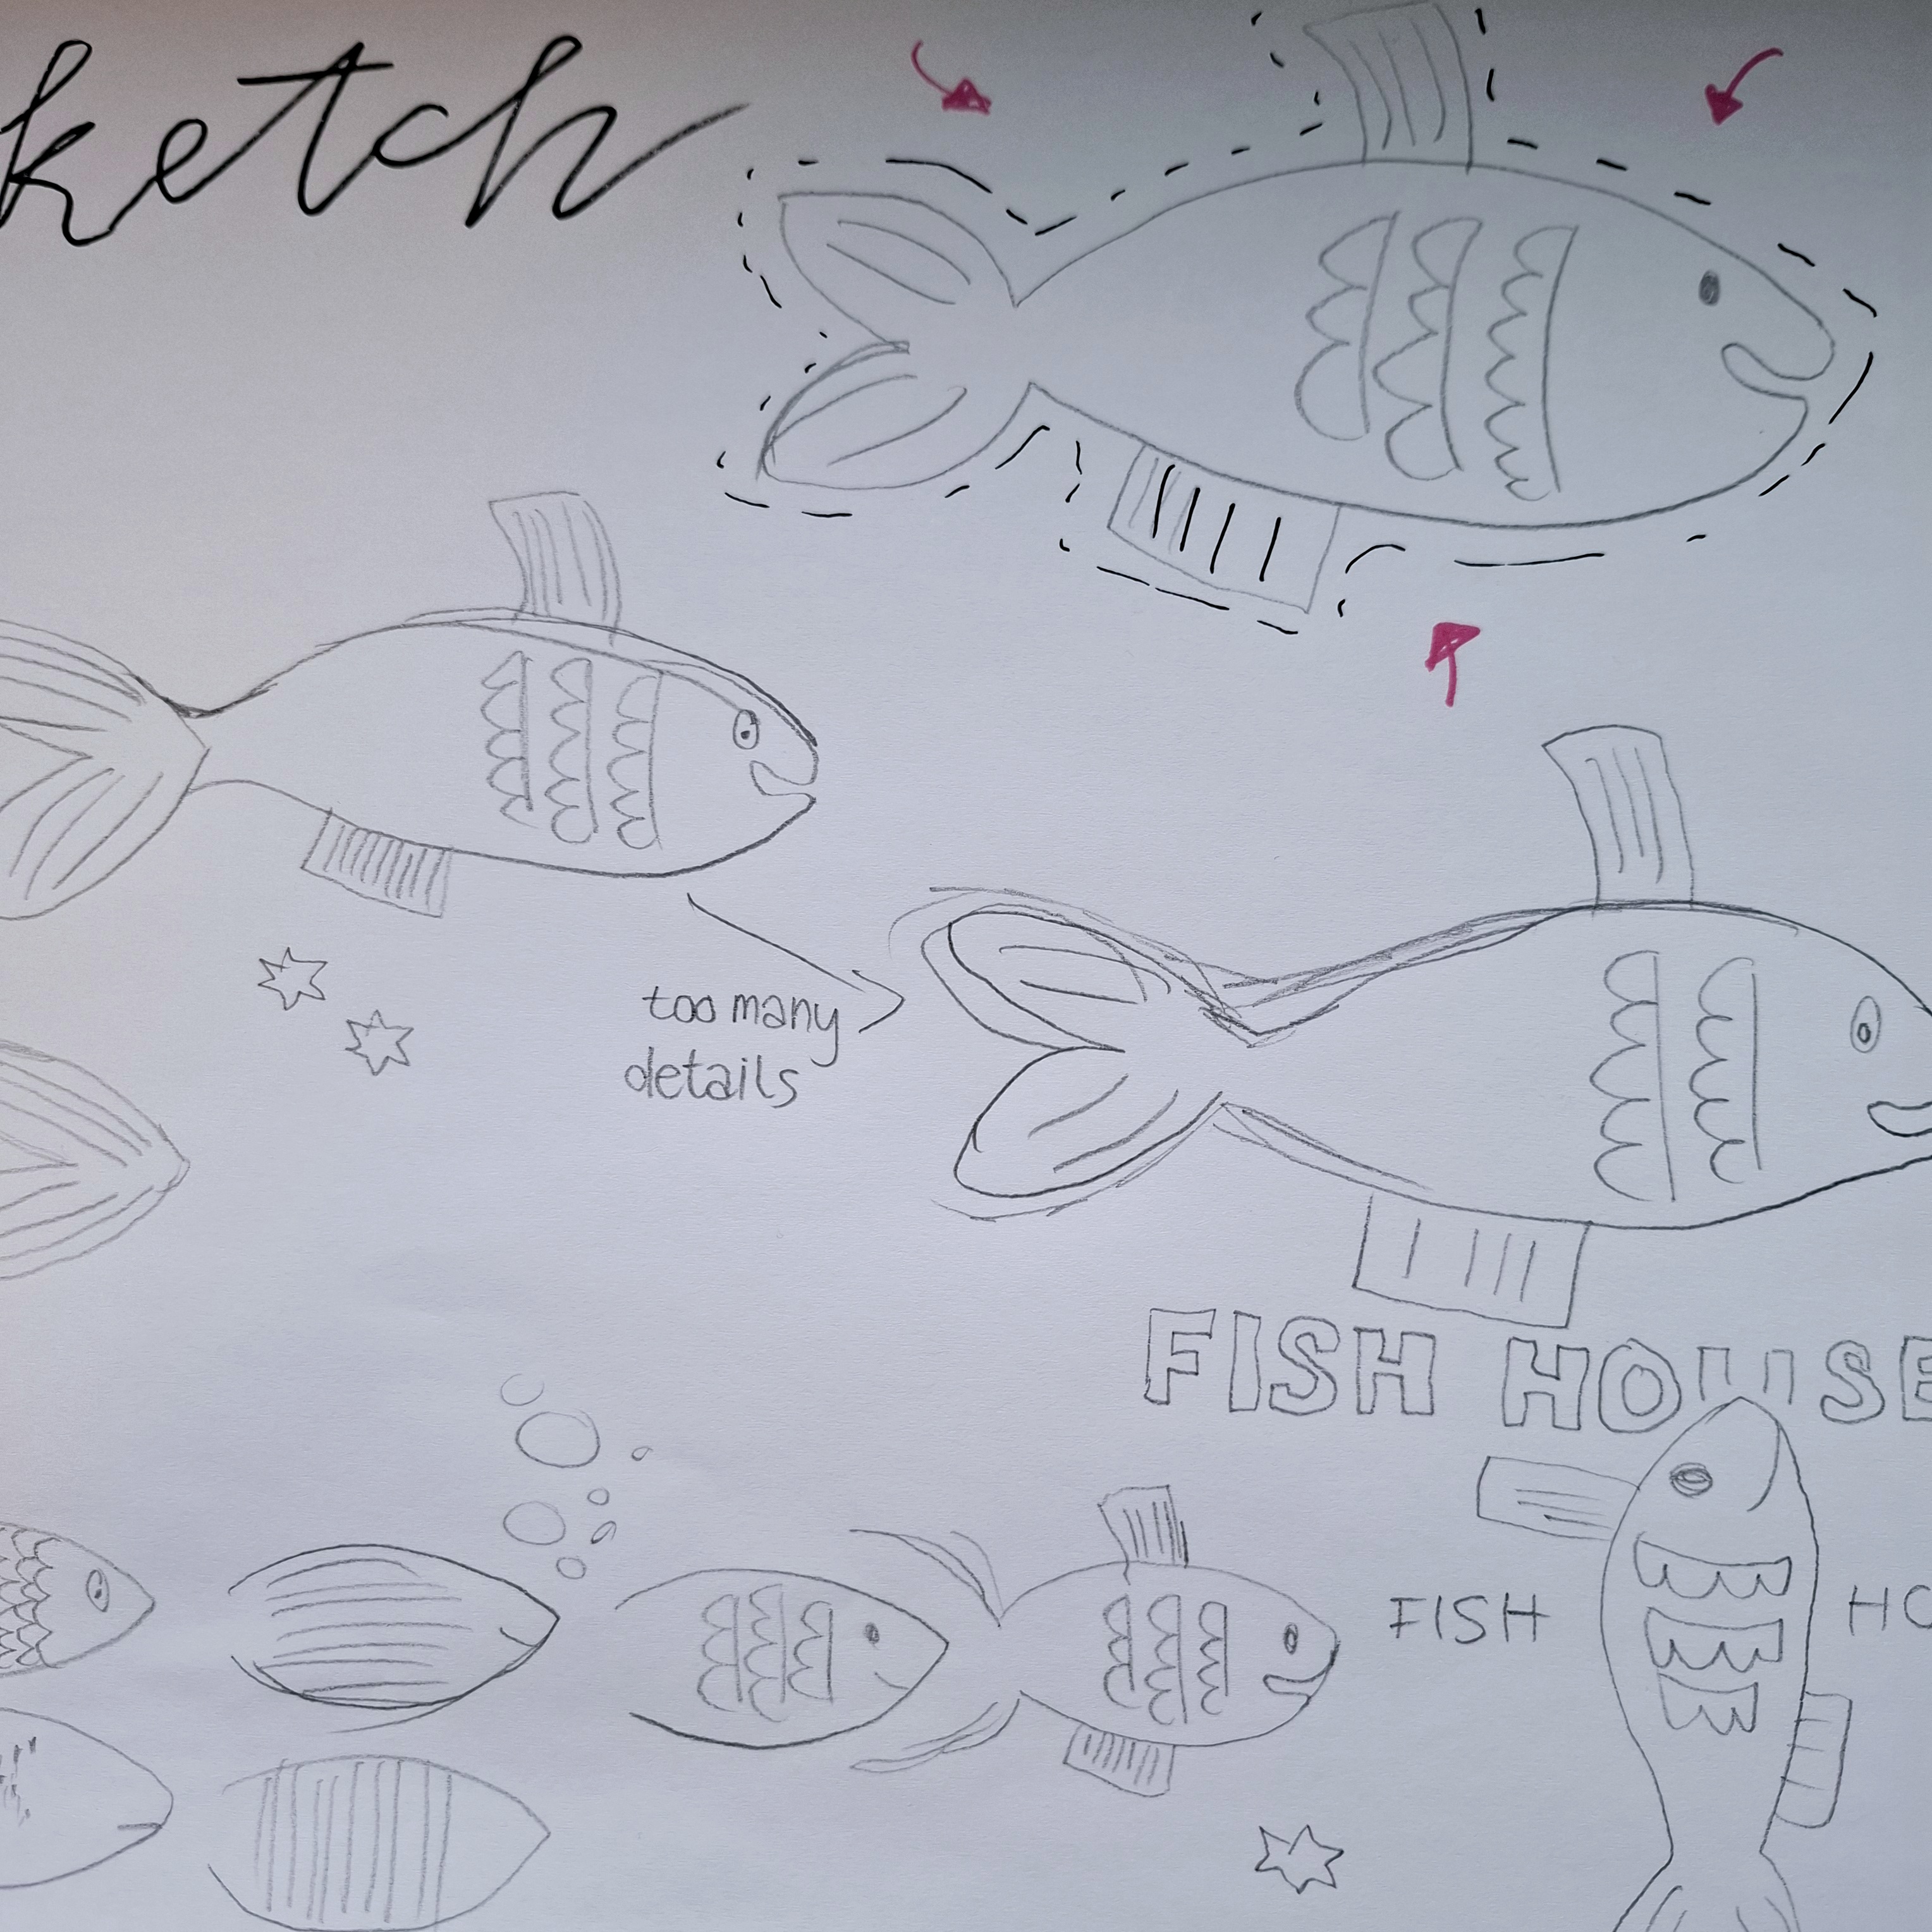 ketch
too many
details
FISH HOUSE
FISH HO